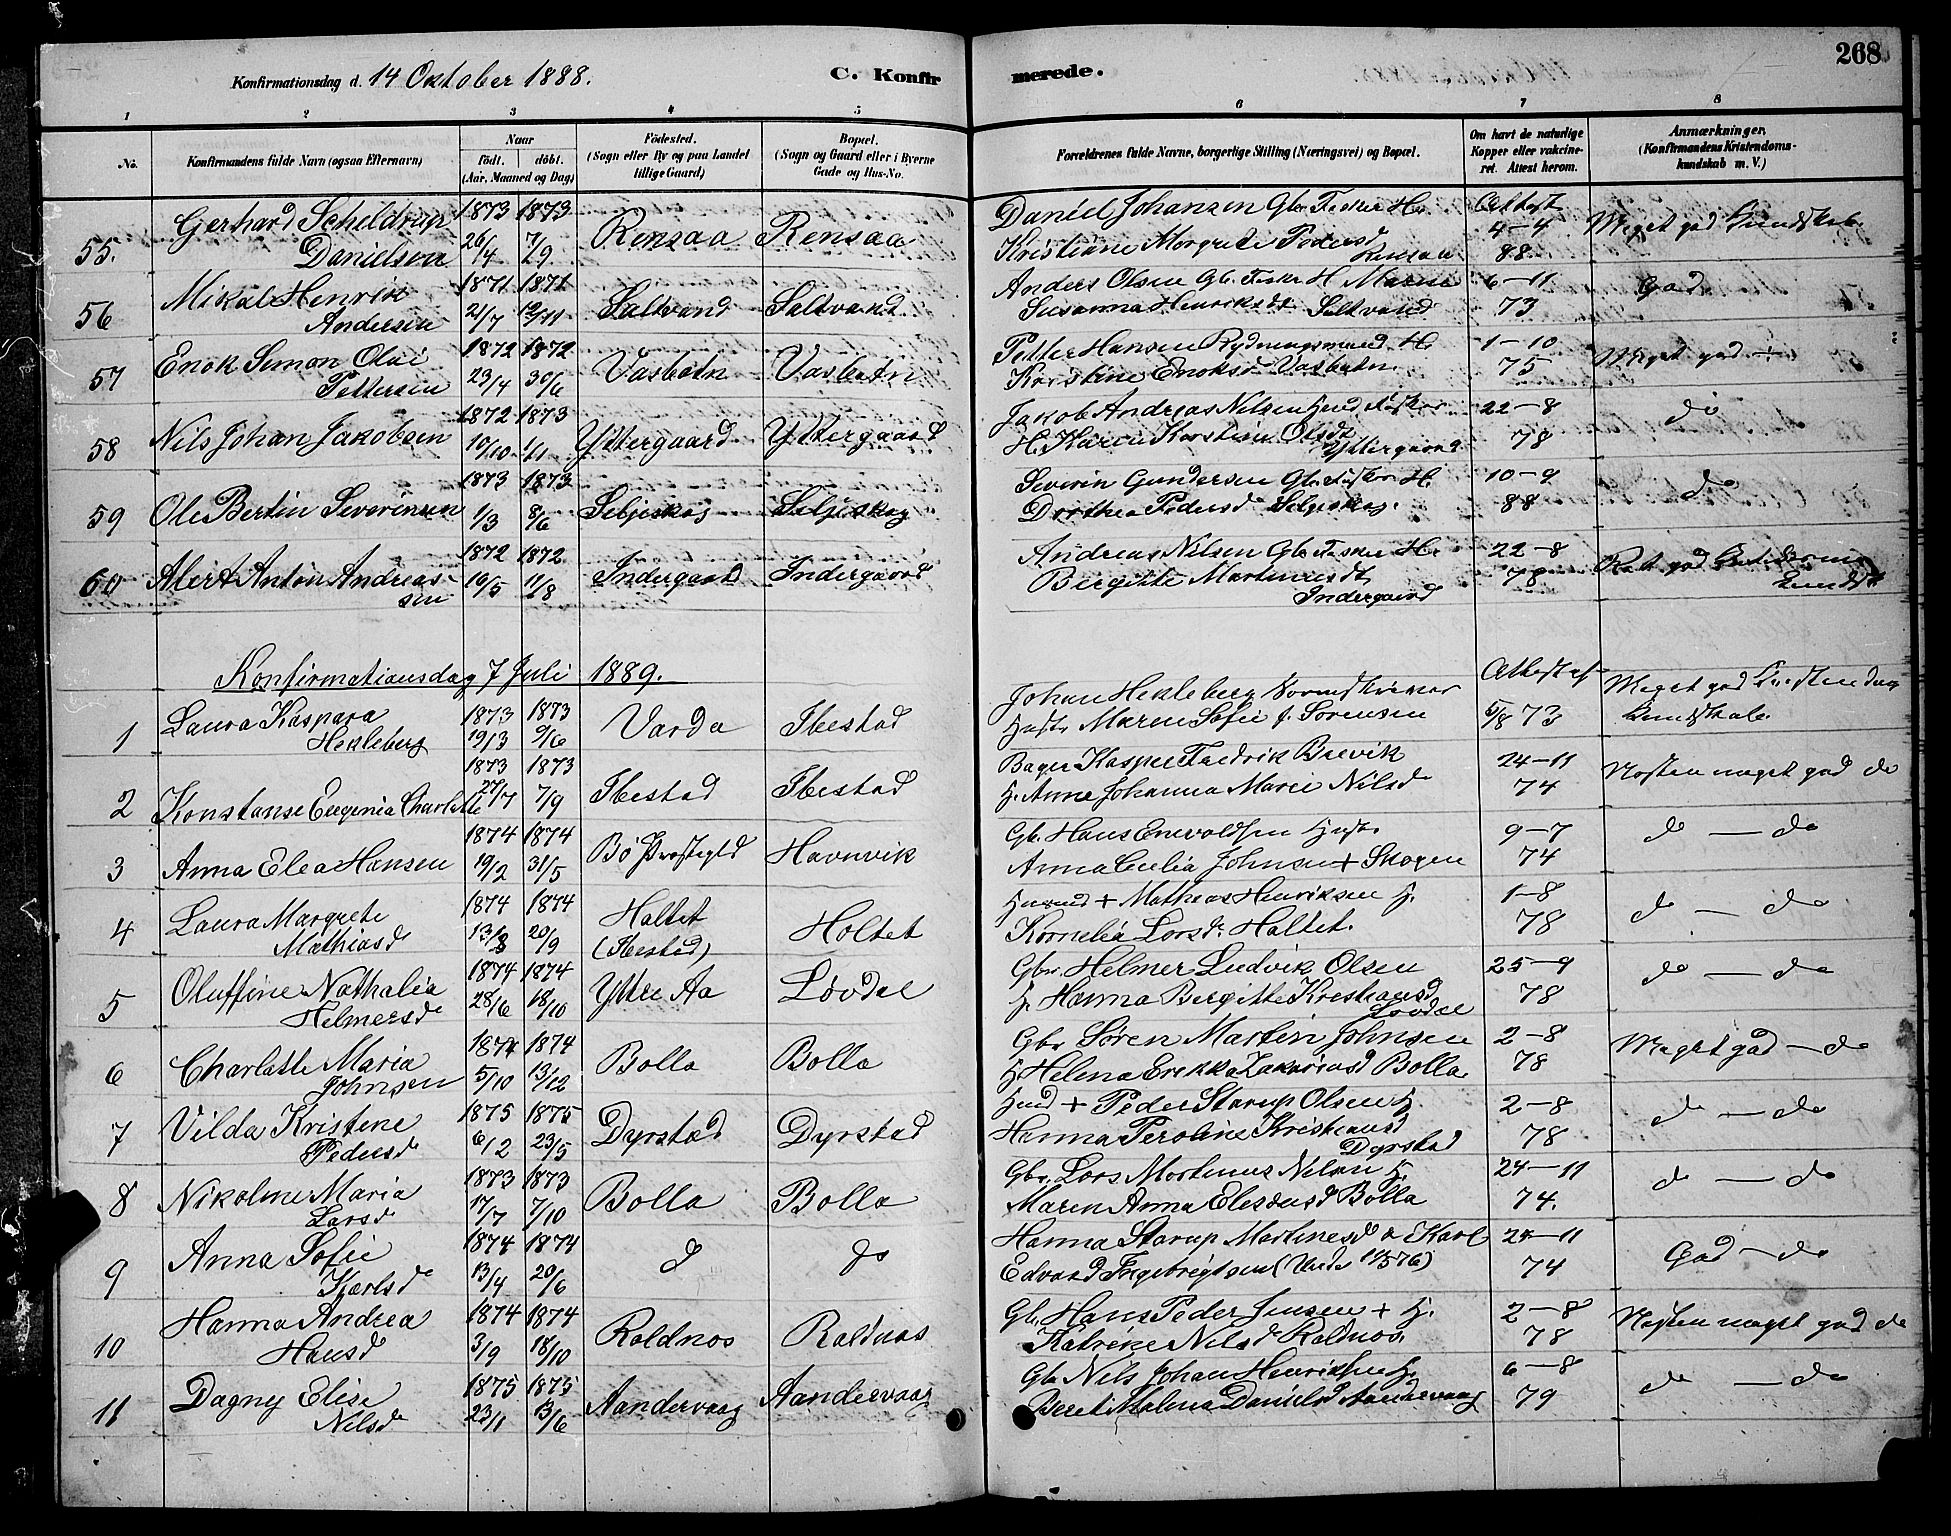 268
Konfirmationsdag d. 14 Oktober 1888. C. Konfirmerede.
1 2 3 4 5 6 7 8
No. Konfirmandens fulde Navn (ogsaa Efternavn) Naar født. døbt. (Aar, Maaned og Dag) Fødested. (Sogn eller By og paa Landet tillige Gaard) Bopæl. (Sogn og Gaard eller i Byerne Gade og Hus-No. Forældrenes fulde Navne, borgerlige Stilling (Næringsvei) og Bopæl. Om havt de naturlige Kopper eller vakcineret. Attest herom. Anmærkninger. (Konfirmandens Kristendomskundskab m. V.)
55. Gerhard Scheldrup Danielsen 1873 26/4 1873 7/9 Rensaa Rensaa Daniel Johansen Gbr. Fisker H. Kristiane Margrete Pedersd Rensaa Attest 4-4 88 Meget god Kundskab
56 Mikal Henrik Andersen 1871 2/7 1871 12/11 Saltvand Saltvand Anders Olsen Gb. Fisker H. Maren Susanna Henriksdt Saltvand 6-11 73 God
57 Enok Simon Olai Pettersen 1872 23/4 1872 30/6 Vasbotn Vasbotn Petter Hansen Rydningsmand H. Karstine Enoksd Vasbotn 1-10 75 Meget god
58 Nils Johan Jakobsen 1872 10/10 1873 1/1 Yttergaard Yttergaard Jakob Andreas Nilsen Fisker H. Karen Olsdt Yttergaard 22-8 78 do
59 Ole Bertin Severinsen 1873 1/3 1873 8/6 Seljeskog Seljeskog Severin Gundersen Gb. Fisker H. Dorthea Pedersd Seljeskog. 10-9 88 do
60 Alert Anton Andreassen 1872 16/5 1872 11/8 Indergaard Indergaard Andreas Nilsen Gb. Fisker H. Bergitte Martinusdt Indergaard 22-8 78
Konfirmationsdag 7 Juli 1889.
1 Laura Kaspara Hekleberg 1873 19/3 1873 9/6 Varda Ibestad Johan Hekleberg Hustr. Maren Sofie f. Sørensen Attest af 5/8 73 Meget god Kristendoms Kundskab.
2 Konstanse Eugenia Charlotte 1873 27/7 1873 7/9 Ibestad Ibestad Bager Kasper Fredrik Brevik H. Anne Johanna Marie Nilsd 24-11 74 Næsten meget god do
3 Anna Elea Hansen 1874 19/2 1874 31/5 Bø Præstegld Havnvik Gb. Hans Enevoldsen Hustr. Anna Cecilia Johnsen + Skogen 9-7 74 do - do
4 Laura Margrete Mathiasd 1874 13/8 1874 20/9 Holtet (Ibestad) Holtet Husmd + Mathias Henriksen H. Kornelia Larsd. Holtet. 1-8 78 do - do
5 Oluffine Nathalia Helmersd 1874 28/6 1874 18/10 Ytre Aa Løvdal Gbr. Helmer Ludvik Olsen H. Hanna Bergitte Kristiansd Løvdal 25-9 78 do - do
6 Charlotte Maria Johnsen 1874 5/10 1874 13/12 Bolla Bolla Gbr Søren Martin Johnsen H. Helena Erikka Zakariasd Bolla 2-8 78 Meget god - do
7 Vilda Kristine Pedersd 1875 6/2 1875 23/5 Dyrstad Dyrstad Husmd + Peder Starup Olsen H. Hanna Peroline Kristiansd Dyrstad 2-8 78 do - do
8 Nikoline Maria Larsd 1873 17/7 1873 7/10 Bolla Bolla Gbr. Lars Martinus Nilsen H. Maren Anna Eleseusd Bolla 24-11 74. do - do
9 Anna Sofie Karlsd 1874 13/4 1874 20/6 do do Hanna Starup Martinesd o Karl Edvard Ingebrigtsen 24-11 74 God - do
10 Hanna Andrea Hansd 1874 3/9 1874 18/10 Roldnos Roldnos Gb. Hans Peder Jensen + H. Katrine Nilsd Roldnos. 2-8 78 Næsten meget god do
11 Dagny Elise Nilsd 1875 23/1 1875 13/6 Aandervaag Aandervaag Gb Nils Johan Henriksen H. Beret Malena Danielsd Aandervaag 6-8 79 do - do